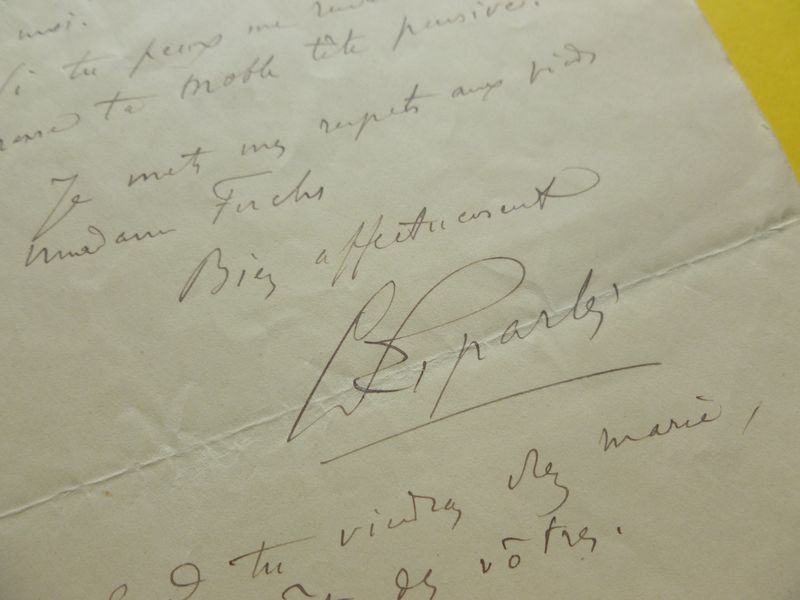 moi.
Si tu peux me
ta noble tête pensive.
Je mets mes respects aux pieds
Madame Fuchs
Bien affectueusement
quand tu viendras chez marie,
des vôtres.